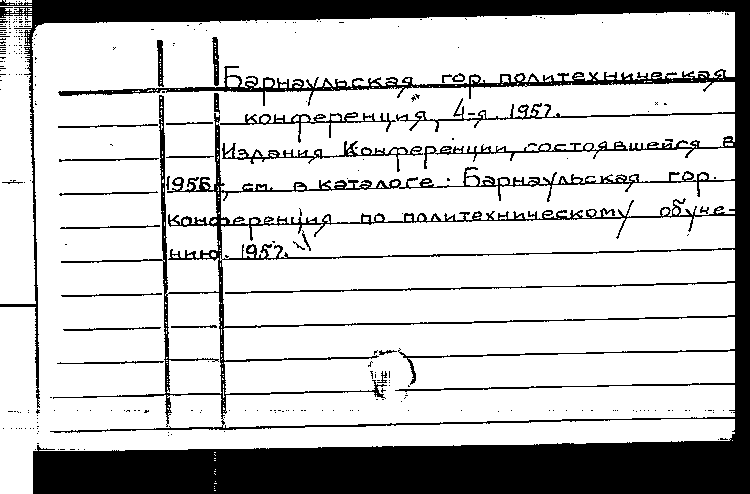 Барнаульская гор. политехническая
конференция, 4-я. 1957.
Издания Конференции, состоявшейся в
1956г, см. в каталоге: Барнаульская гор.
конференция по политехническому обуче-
нию. 1957.